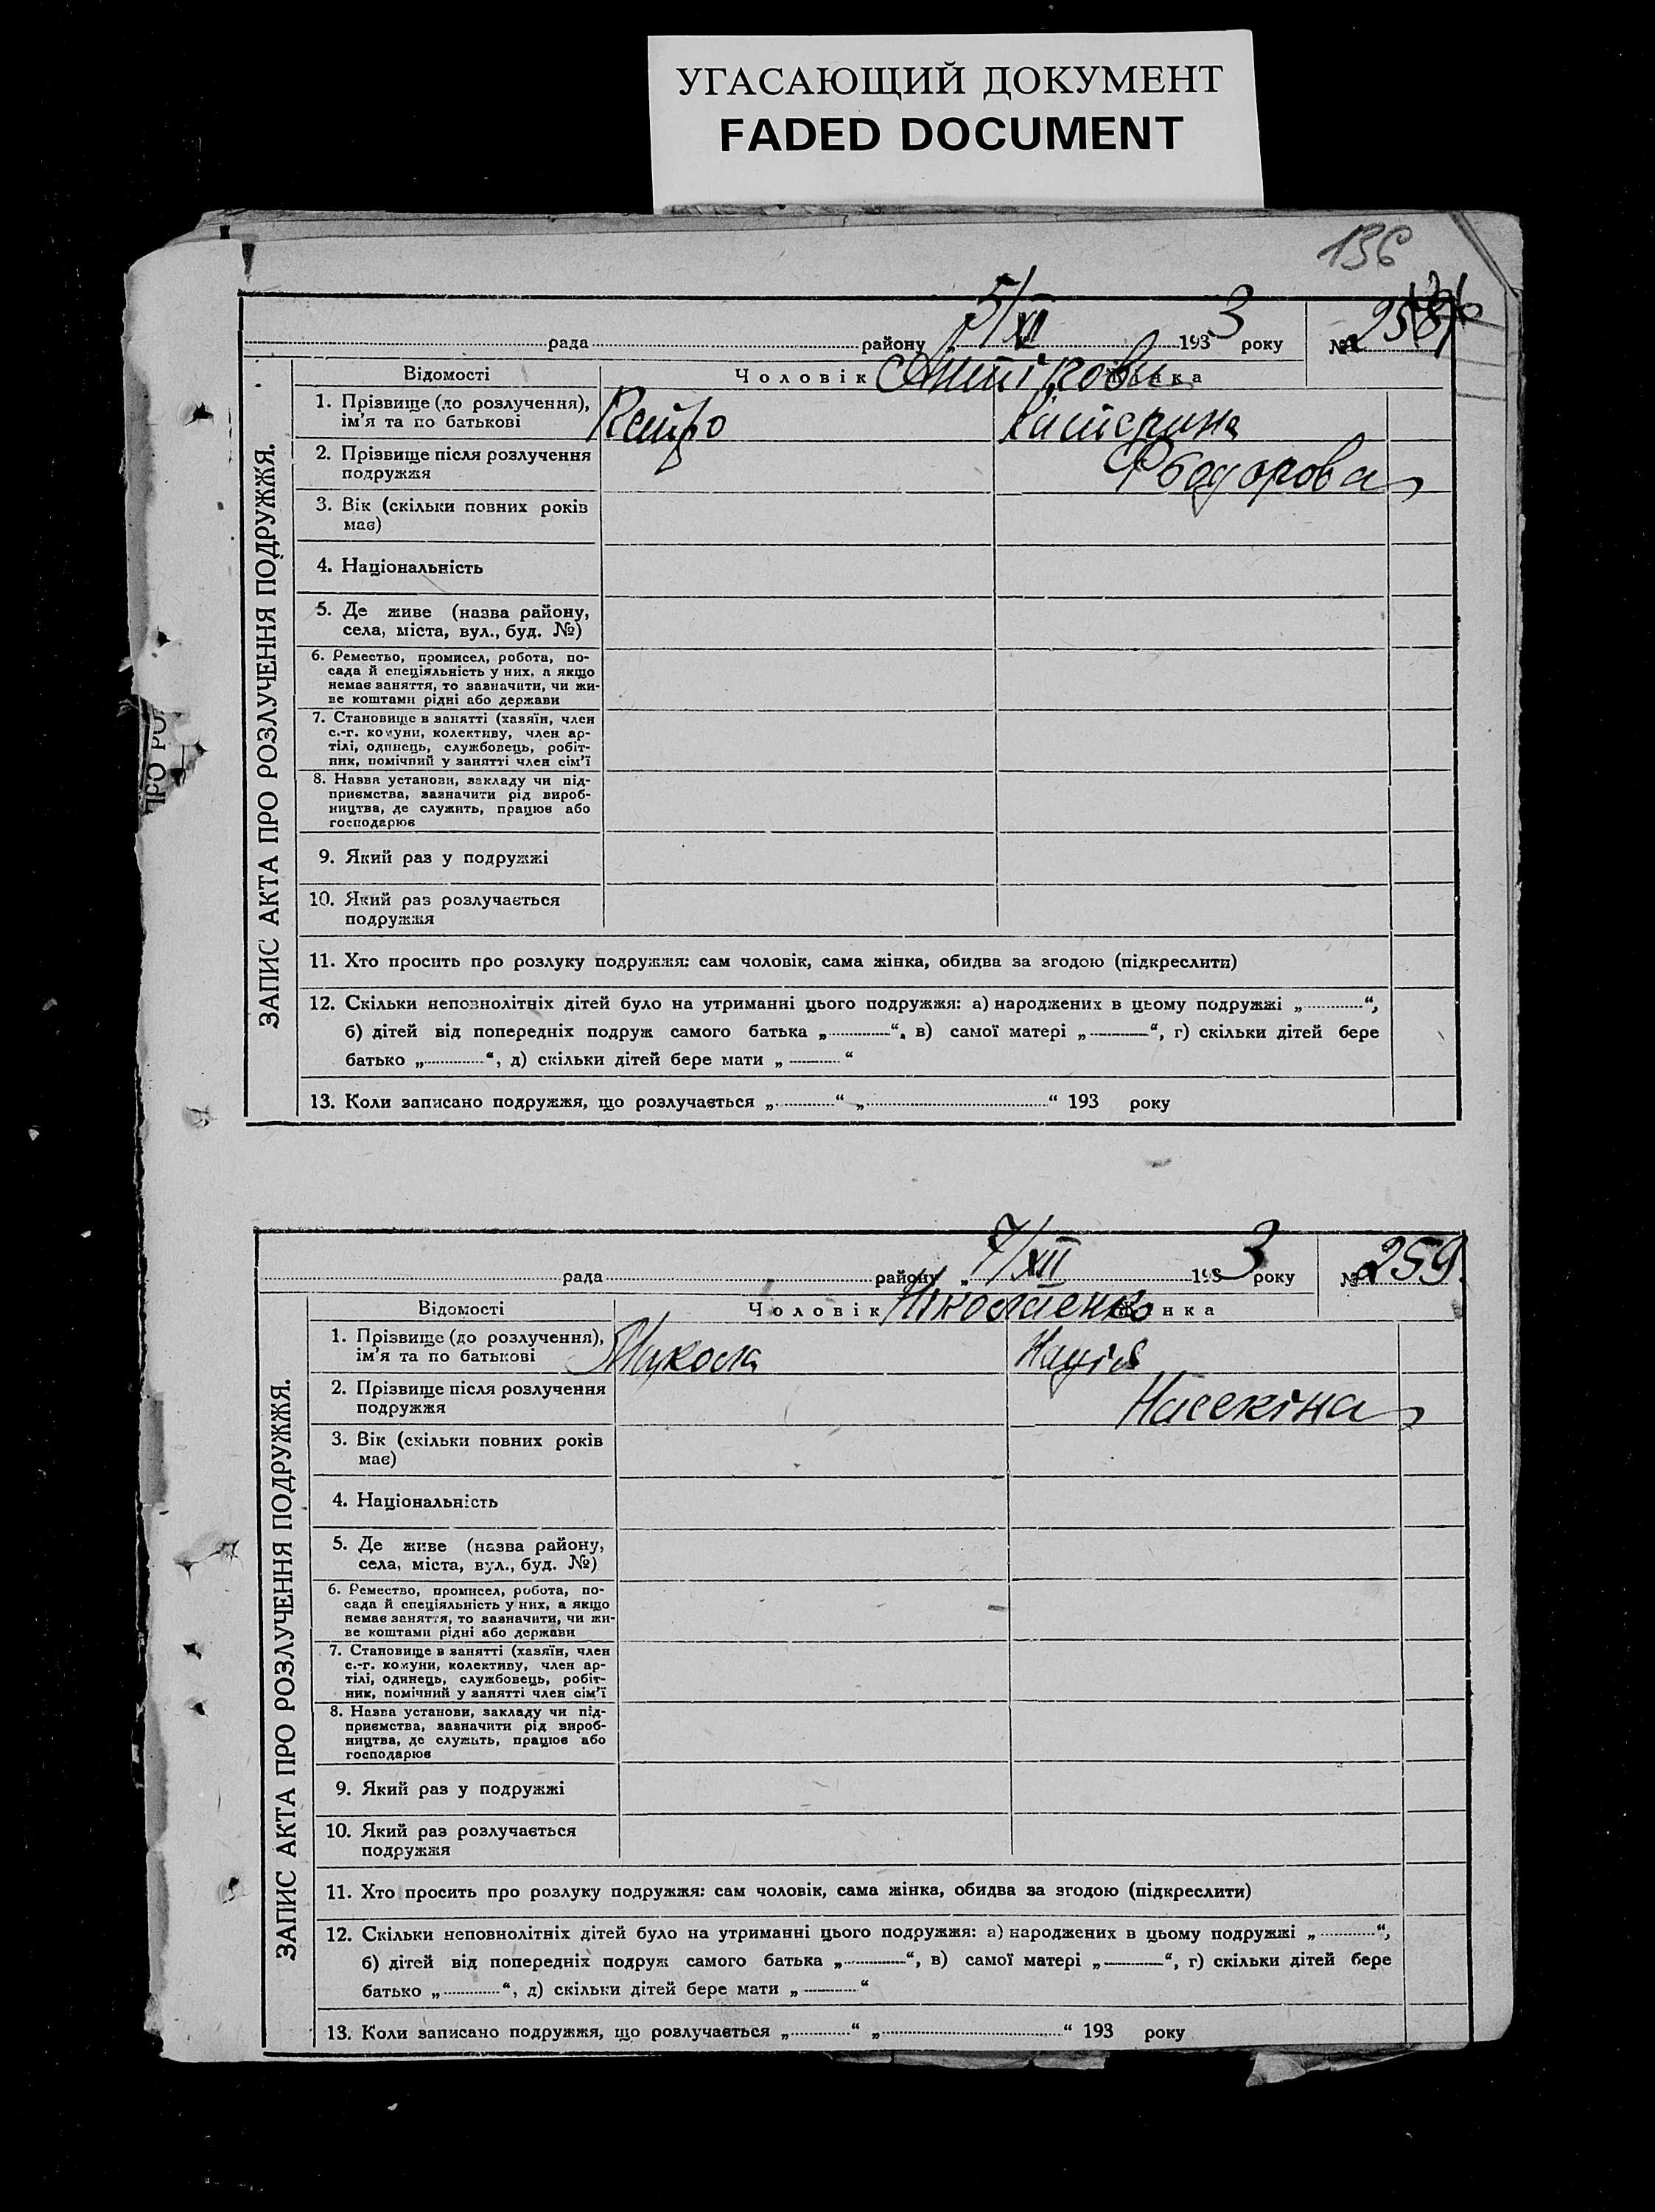 УГАСАЮЩИЙ ДОКУМЕНТ
FADED DOCUMENT
136
рада району 5/XII 1933 року № 258
Відомості Чоловік Жінка
1. Прізвище (до розлучення), ім'я та по батькові Петро Катерина
2. Прізвище після розлучення подружжя Фбодорова
3. Вік (скільки повних років має)
4. Національність
5. Де живе (назва району, села, міста, вул., буд. №)
6. Ремество, промисел, робота, по-
сада й спеціяльність у них, а якщо
немає заняття, то зазначити, чи жи-
ве коштами рідні або держави
7. Становище в занятті (хазяїн, член
с.-г. комуни, колективу, член ар-
тілі, одинець, службовець, робіт-
ник, помічний у занятті член сім'ї
8. Назва установи, закладу чи під-
приємства, зазначити рід вироб-
ництва, де служить, працює або
господарює
9. Який раз у подружжі
10. Який раз розлучається
подружжя
11. Хто просить про розлуку подружжя: сам чоловік, сама жінка, обидва за згодою (підкреслити)
12. Скільки неповнолітніх дітей було на утриманні цього подружжя: а) народжених в цьому подружжі „ “,
б) дітей від попередніх подруж самого батька „ “, в) самої матері „ “, г) скільки дітей бере
батько „ “, д) скільки дітей бере мати „ “
13. Коли записано подружжя, що розлучається „ “ „ “ 193 року
ЗАПИС АКТА ПРО РОЗЛУЧЕННЯ ПОДРУЖЖЯ.
рада району „ 7/XII 1933 року № 259.
Відомості Чоловік Ніколаенко Жінка
1. Прізвище (до розлучення), ім'я та по батькові Микола Надія
2. Прізвище після розлучення подружжя Насекіна
3. Вік (скільки повних років має)
4. Національність
5. Де живе (назва району, села, міста, вул., буд. №)
6. Ремество, промисел, робота, по-
сада й спеціяльність у них, а якщо
немає заняття, то зазначити, чи жи-
ве коштами рідні або держави
7. Становище в занятті (хазяїн, член
с.-г. комуни, колективу, член ар-
тілі, одинець, службовець, робіт-
ник, помічний у занятті член сім'ї
8. Назва установи, закладу чи під-
приємства, зазначити рід вироб-
ництва, де служить, працює або
господарює
9. Який раз у подружжі
10. Який раз розлучається
подружжя
11. Хто просить про розлуку подружжя: сам чоловік, сама жінка, обидва за згодою (підкреслити)
12. Скільки неповнолітніх дітей було на утриманні цього подружжя: а) народжених в цьому подружжі „ “,
б) дітей від попередніх подруж самого батька „ “, в) самої матері „ “, г) скільки дітей бере
батько „ “, д) скільки дітей бере мати „ “
13. Коли записано подружжя, що розлучається „ “ „ “ 193 року
ЗАПИС АКТА ПРО РОЗЛУЧЕННЯ ПОДРУЖЖЯ.